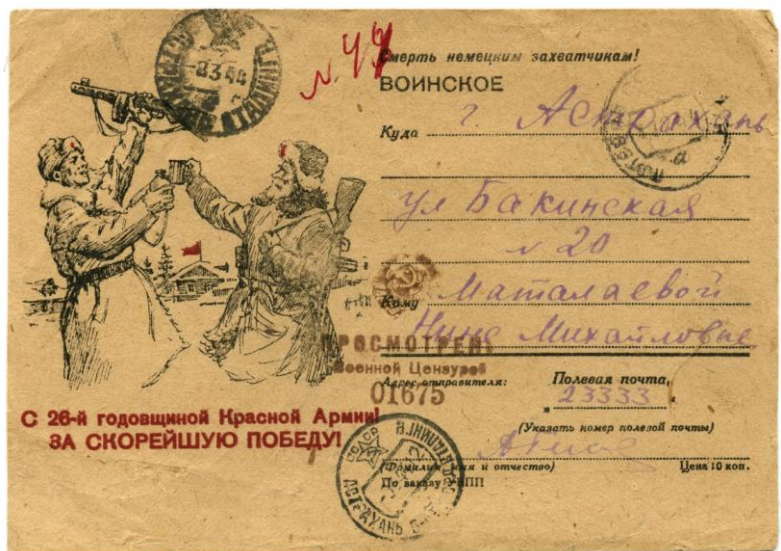 № 49
Смерть немецким захватчикам!
ВОИНСКОЕ
Куда г. Астрахань
ул Бакинская
№ 20
Кому Маталаевой
Нине Михайловне
ПРОСМОТРЕНО
Военной Цензурой
01675
Адрес отправителя:
Полевая почта
„ 23333 "
(Указать номер полевой почты)
(Фамилия, имя и отчество)
Цена 10 коп.
По заказу УВПП
С 26-й годовщиной Красной Армии!
ЗА СКОРЕЙШУЮ ПОБЕДУ!
8344
АСТРАХАНЬ
СССР